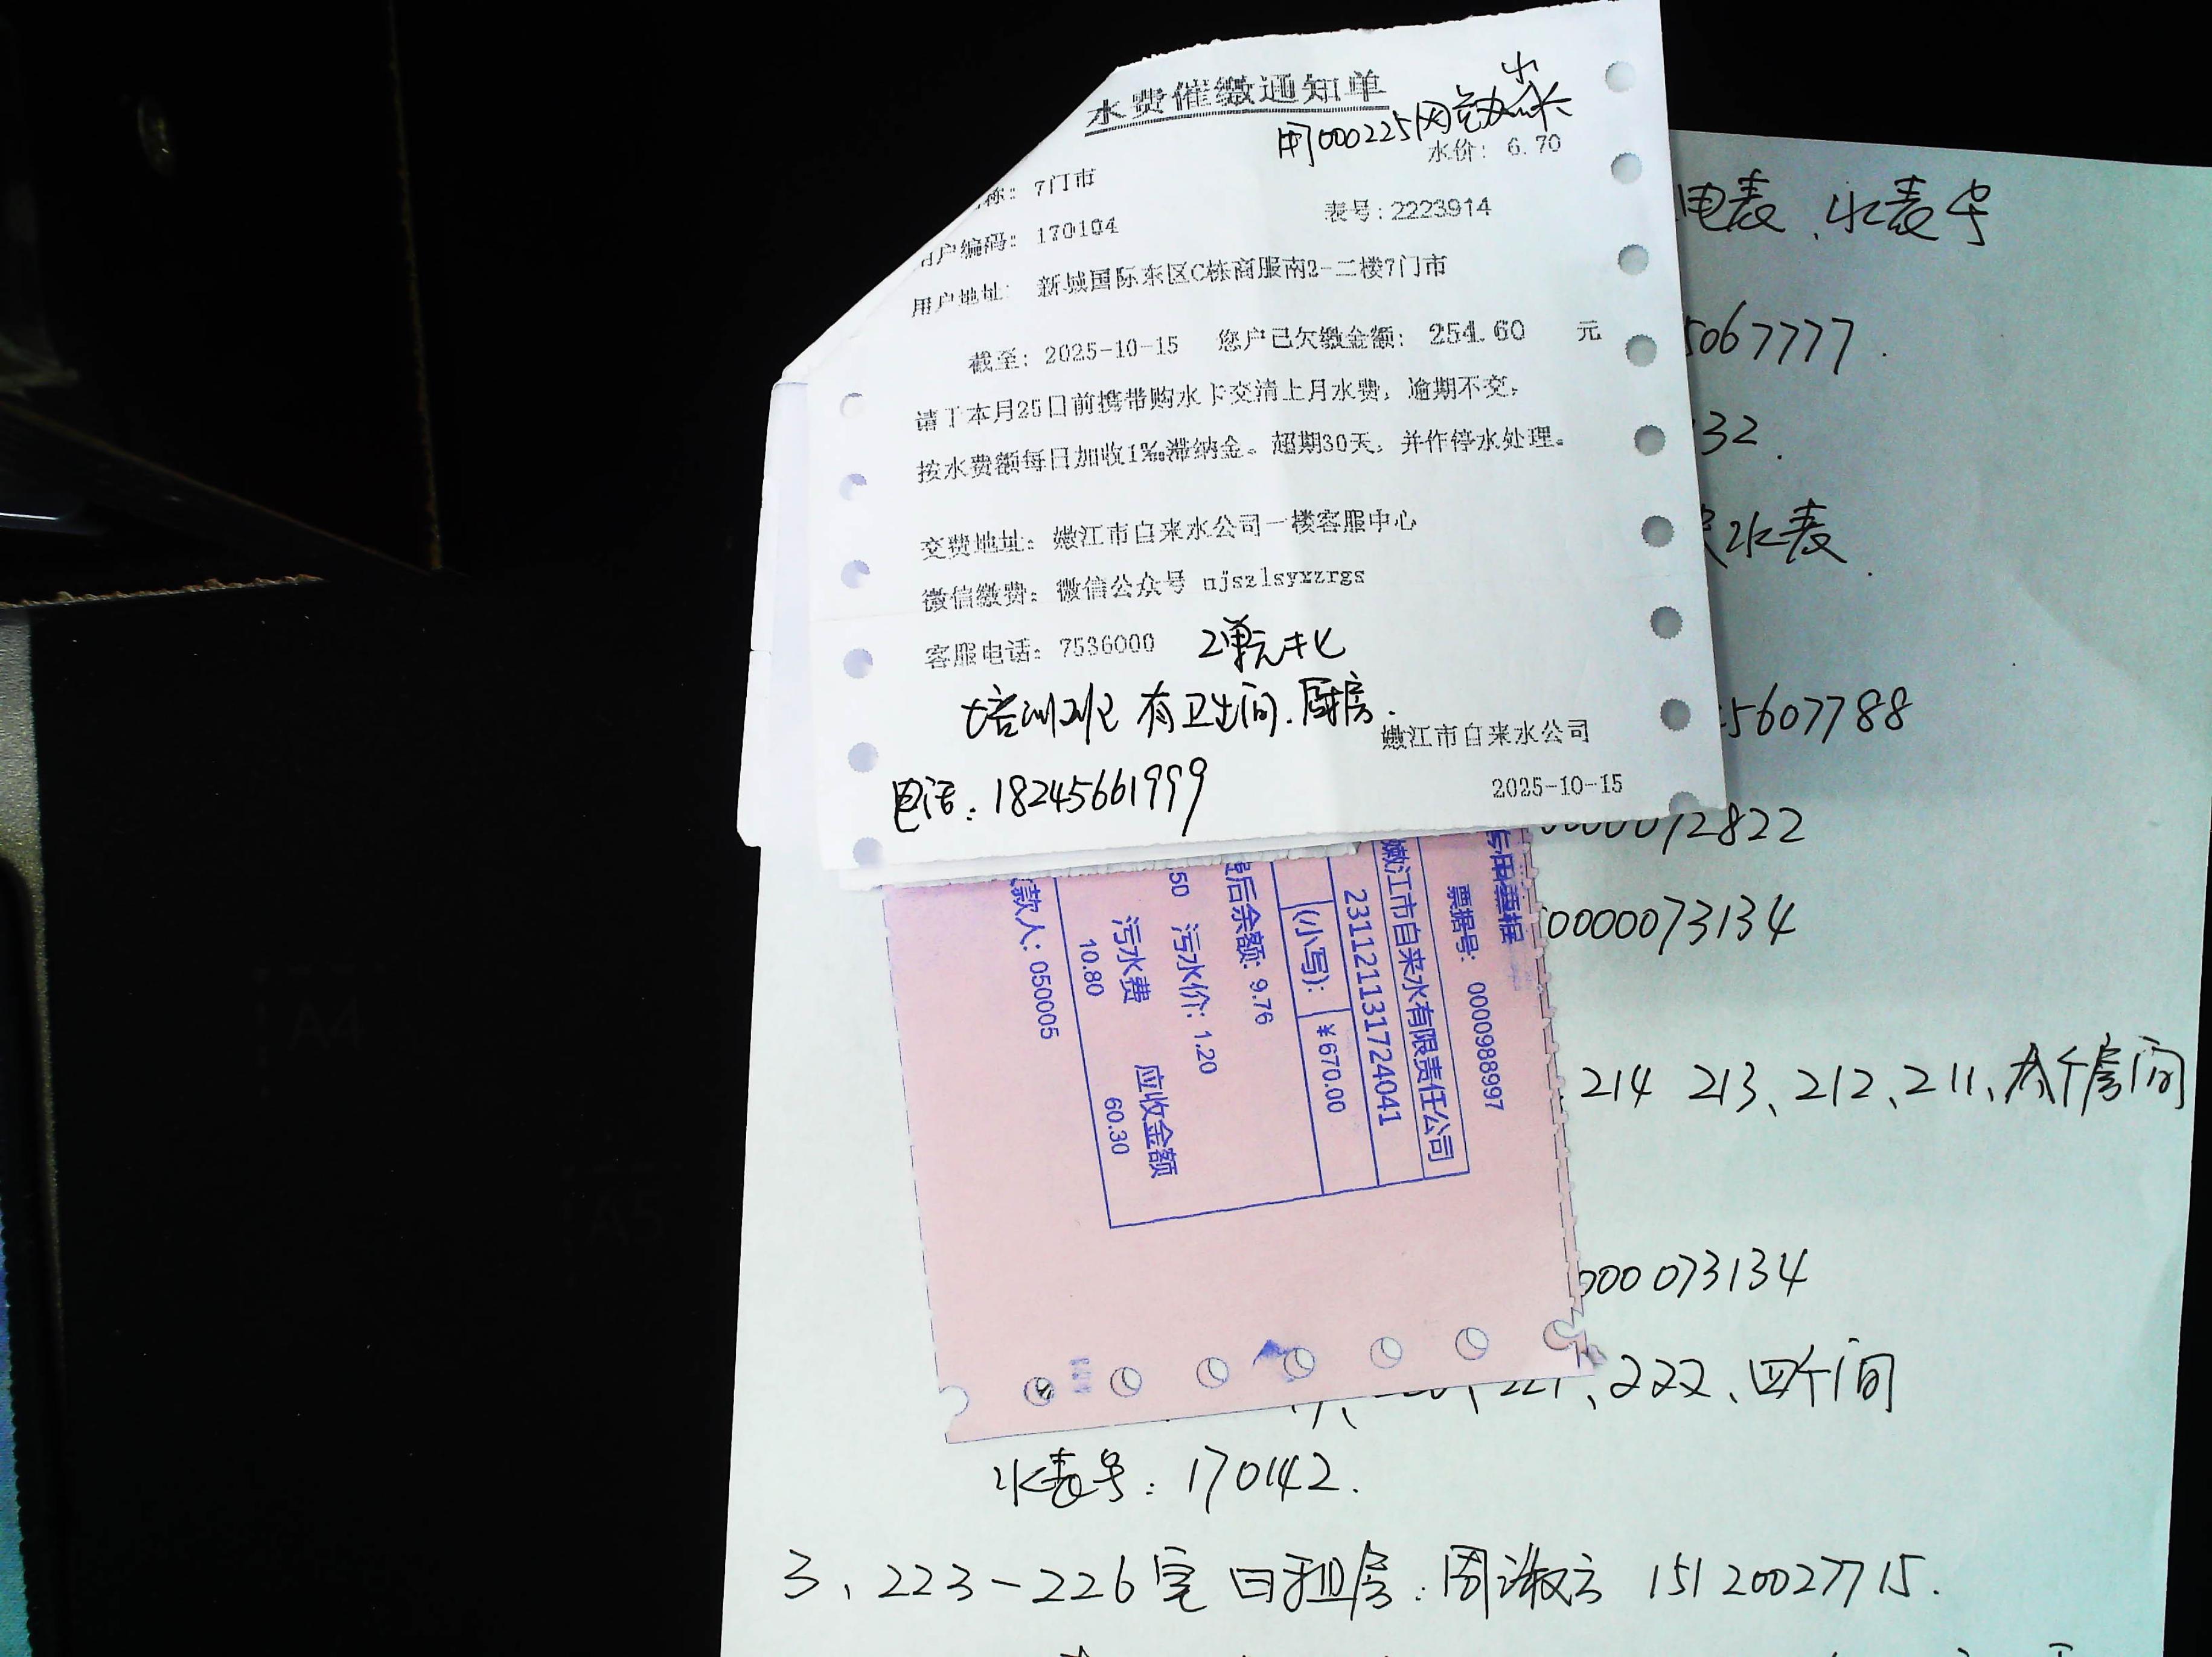 水费催缴通知单
用000225网
水价: 6.70
称: 7门市
表号: 2223914
用户编码: 170104
用户地址: 新城国际东区C栋商服南2-二楼7门市
截至: 2025-10-15 您户已欠缴金额: 254.60 元
请于本月25日前携带购水卡交清上月水费, 逾期不交,
按水费额每日加收1‰滞纳金。超期30天, 并作停水处理。
交费地址: 嫩江市自来水公司一楼客服中心
微信缴费: 微信公众号 njszlsyxzrgs
客服电话: 7536000 2单元北
培训班 有卫生间.厨房.
嫩江市自来水公司
电话: 18245661999
2025-10-15
票据号: 0000988997
嫩江市自来水有限责任公司
231121131724041
(小写): ¥670.00
后余额: 9.76
50 污水价: 1.20
污水费 应收金额
10.80 60.30
款人: 050005
电表、水表号
5067777.
32.
水表.
5607788
000072822
0000073134
214 213、212、211、六个房间
000073134
221、222、四个间
水表号: 170142.
3、223-226室 日租房: 周淑云 15120027715.